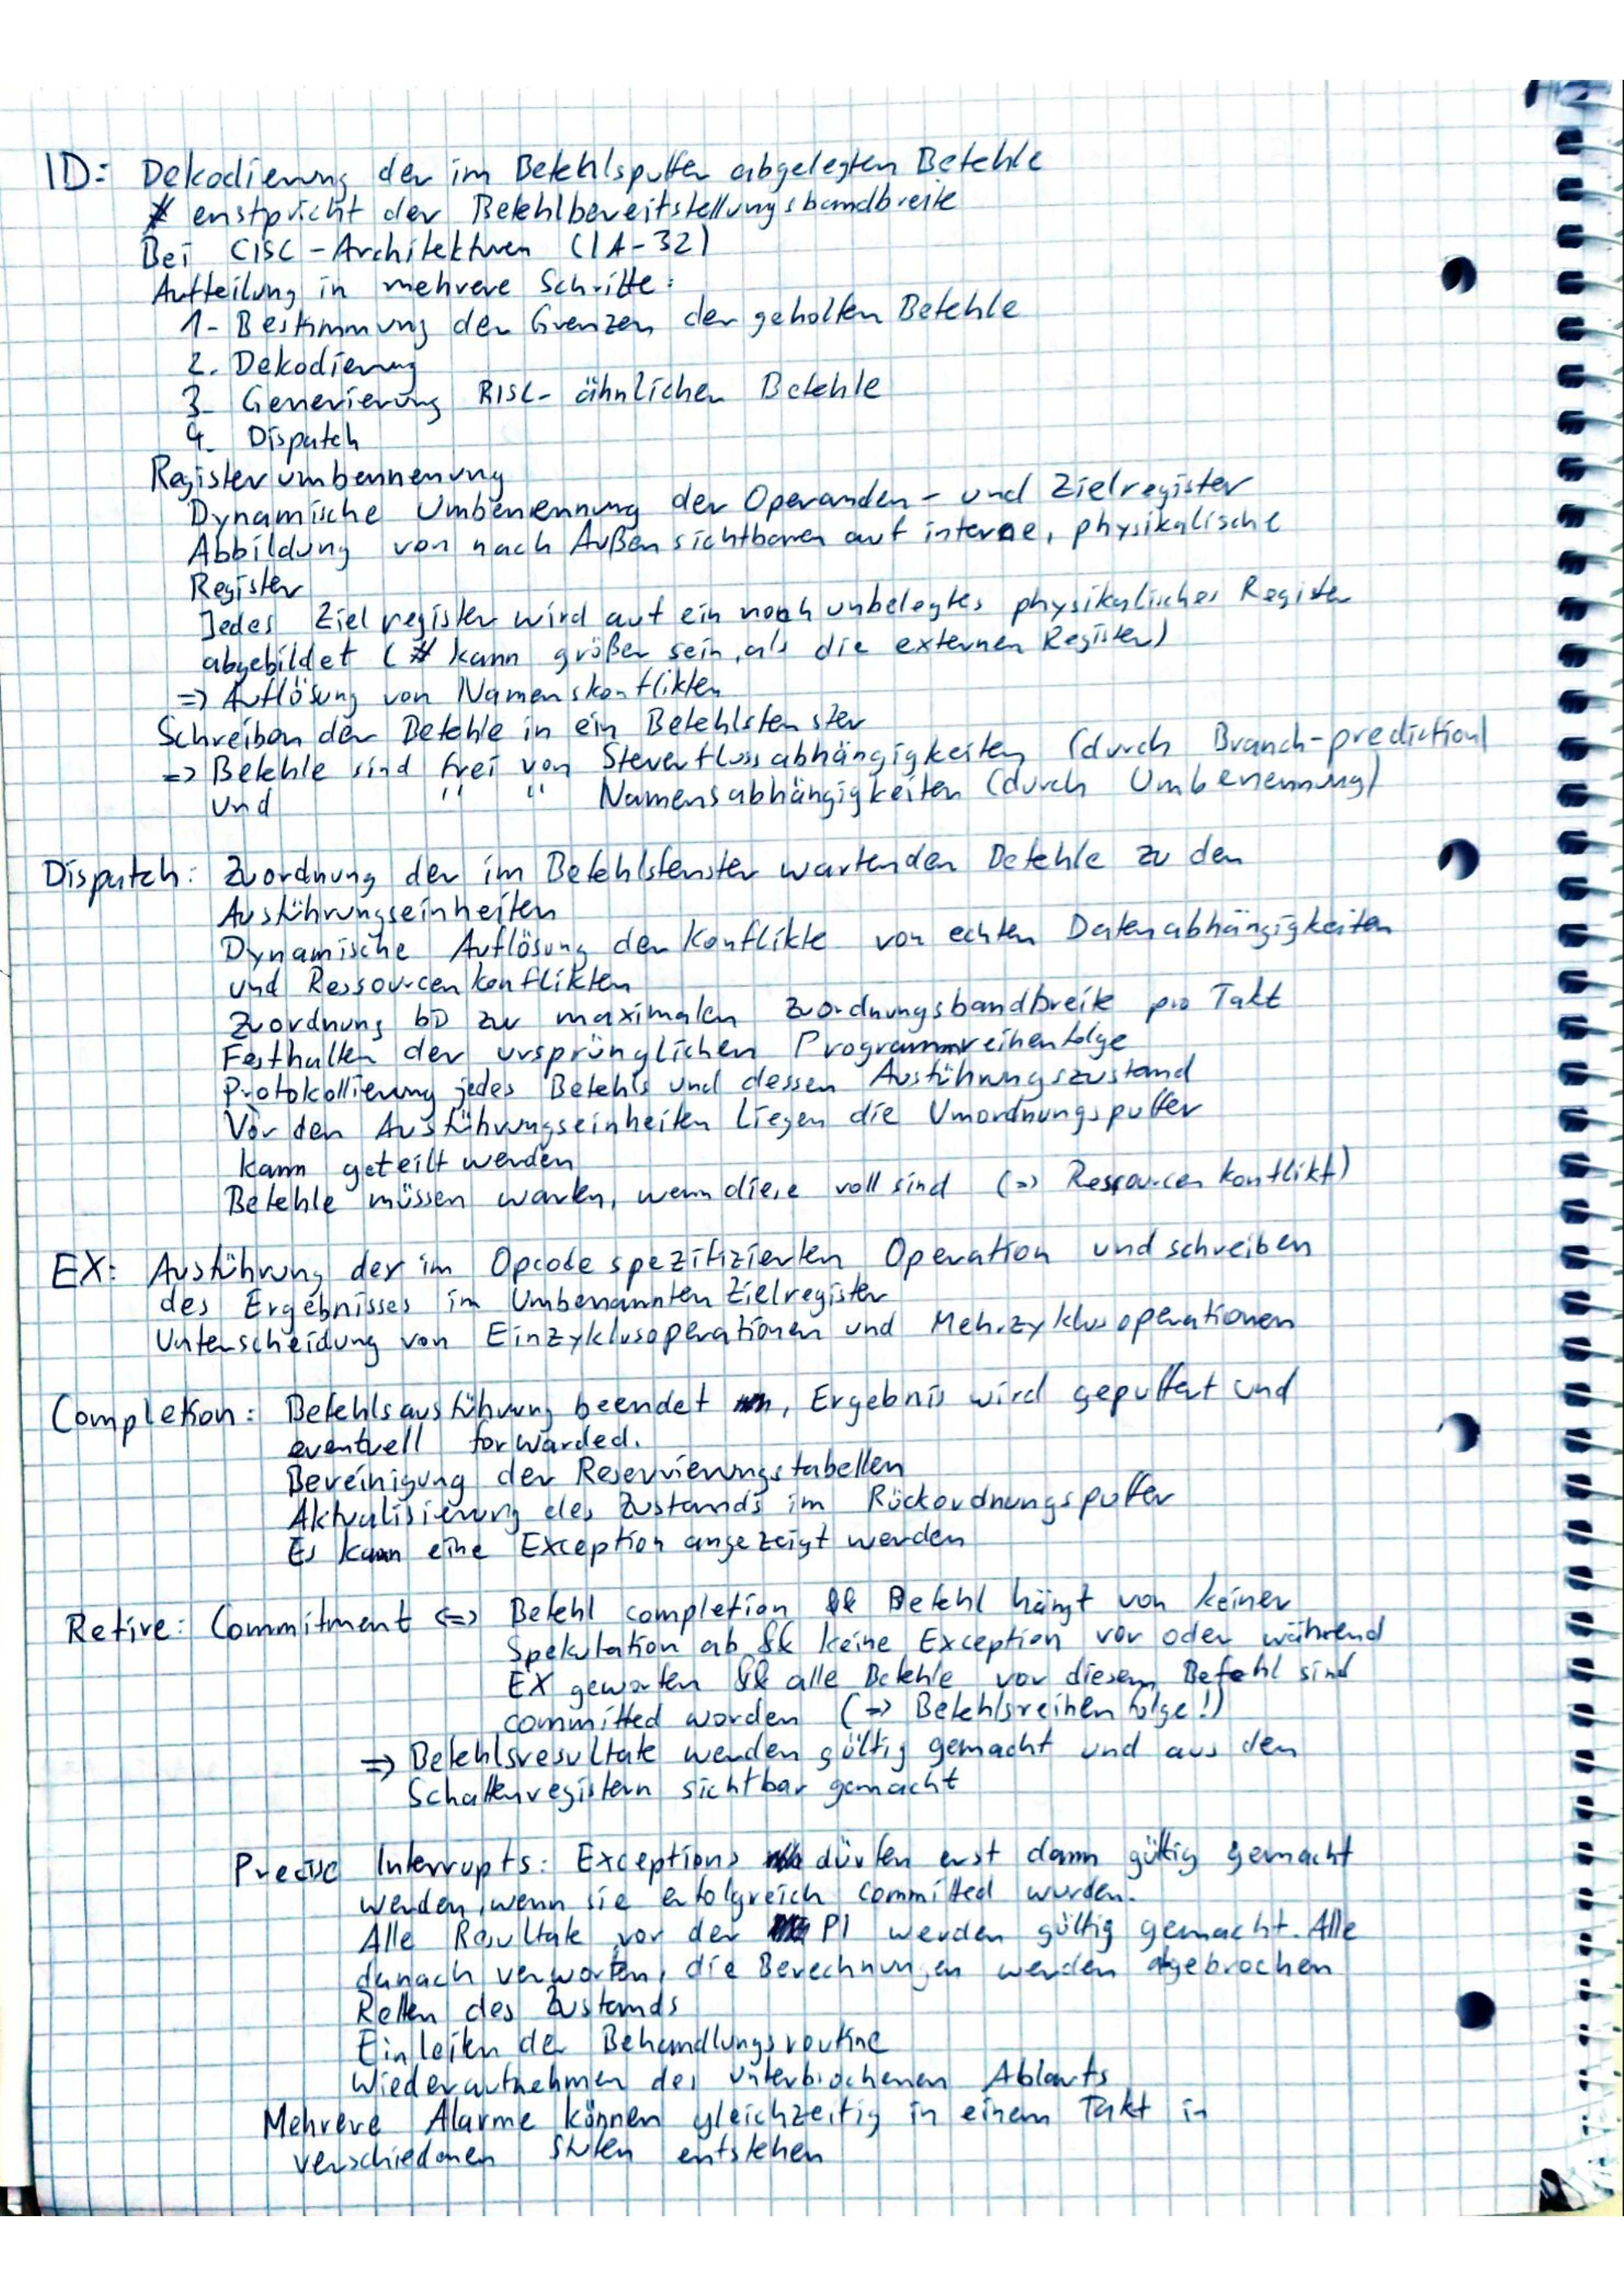 ID: Dekodierung der im Befehlspuffer abgelegten Befehle
# enstpricht der Befehlbereitstellungsbandbreite
Bei CISC-Architekturen (IA-32)
Aufteilung in mehrere Schritte:
1. Bestimmung der Grenzen der geholten Befehle
2. Dekodierung
3. Generierung RISC-ähnlicher Befehle
4. Dispatch
Registerumbennenung
Dynamische Umbenennung der Operanden- und Zielregister
Abbildung von nach Außen sichtbaren auf interne, physikalische
Register
Jedes Zielregister wird auf ein noch unbelegtes physikalisches Register
abgebildet (# kann größer sein, als die externen Register)
=> Auflösung von Namenskonflikten
Schreiben der Befehle in ein Befehlsfenster
=> Befehle sind frei von Steuerflussabhängigkeiten (durch Branch-prediction)
und " " Namensabhängigkeiten (durch Umbenennung)
Dispatch: Zuordnung der im Befehlsfenster wartenden Befehle zu den
Ausführungseinheiten
Dynamische Auflösung der Konflikte von echten Datenabhängigkeiten
und Ressourcenkonflikten
Zuordnung bis zur maximalen Zuordnungsbandbreite pro Takt
Festhalten der ursprünglichen Programmreihenfolge
Protokollierung jedes Befehls und dessen Ausführungszustand
Vor den Ausführungseinheiten liegen die Umordnungspuffer
kann geteilt werden
Befehle müssen warten, wenn diese voll sind (=> Ressourcenkonflikt)
EX: Ausführung der im Opcode spezifizierten Operation und schreiben
des Ergebnisses im Umbenannten Zielregister
Unterscheidung von Einzyklusoperationen und Mehrzyklusoperationen
Completion: Befehlsausführung beendet, Ergebnis wird gepuffert und
eventuell forwarded.
Bereinigung der Reservierungstabellen
Aktualisierung des Zustands im Rückordnungspuffer
Es kann eine Exception angezeigt werden
Retire: Commitment <=> Befehl completion && Befehl hängt von keiner
Spekulation ab && keine Exception vor oder während
EX geworfen && alle Befehle vor diesem Befehl sind
committed worden (=> Befehlsreihenfolge!)
=> Befehlsresultate werden gültig gemacht und aus den
Schattenregistern sichtbar gemacht
Precise Interrupts: Exceptions dürfen erst dann gültig gemacht
werden, wenn sie erfolgreich committed wurden.
Alle Resultate vor der PI werden gültig gemacht. Alle
danach verworfen, die Berechnungen werden abgebrochen
Retten des Zustands
Einleiten der Behandlungsroutine
Wiederaufnehmen des unterbrochenen Ablaufs
Mehrere Alarme können gleichzeitig in einem Takt in
verschiedenen Stufen entstehen